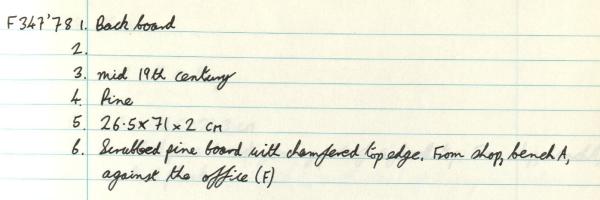 F347'78 1. Back board
2.
3. mid 19th century
4. Pine
5. 26.5 x 71 x 2 cm
6. Scrubbed pine board with chamfered top edge. From shop, bench A,
against the office (F)